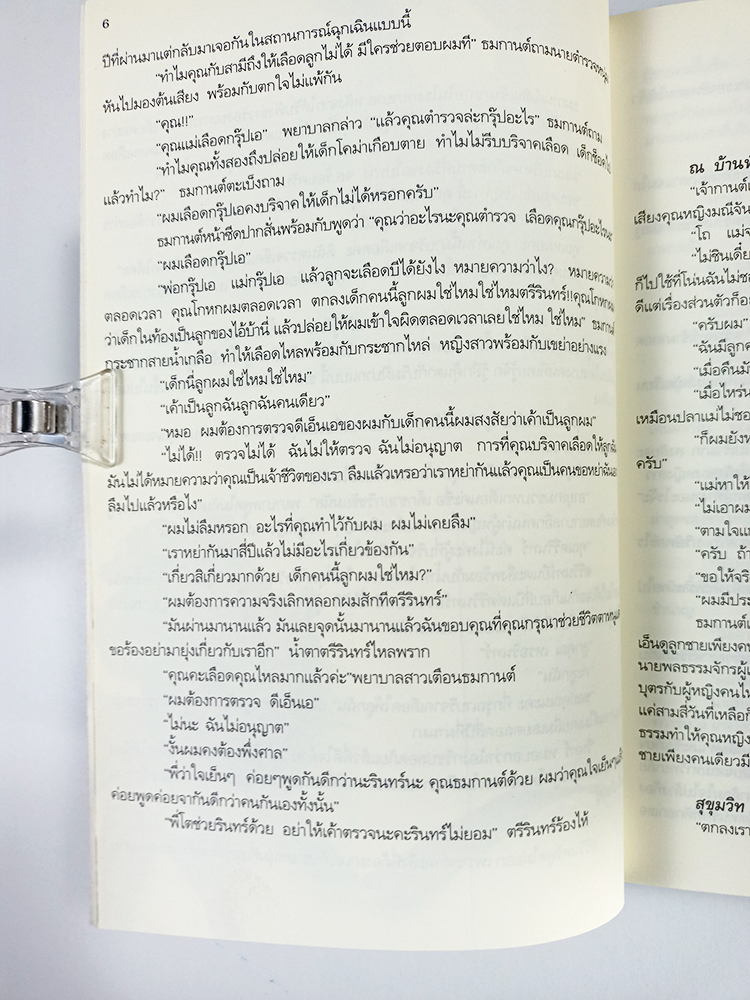 6
ปีที่ผ่านมาแต่กลับมาเจอกันในสถานการณ์ฉุกเฉินแบบนี้
"ทำไมคุณกับสามีถึงให้เลือดลูกไม่ได้ มีใครช่วยตอบผมที" ธมกานต์ถามนายตำรวจหนุ่ม
หันไปมองต้นเสียง พร้อมกับตกใจไม่แพ้กัน
"คุณ!!"
"คุณแม่เลือดกรุ๊ปเอ" พยาบาลกล่าว "แล้วคุณตำรวจล่ะกรุ๊ปอะไร" ธมกานต์ถาม
"ทำไมคุณทั้งสองถึงปล่อยให้เด็กโคม่าเกือบตาย ทำไมไม่รีบบริจาคเลือด เด็กช็อคไป
แล้วทำไม?" ธมกานต์ตะเบ็งถาม
"ผมเลือดกรุ๊ปเอคงบริจาคให้เด็กไม่ได้หรอกครับ"
ธมกานต์หน้าซีดปากสั่นพร้อมกับพูดว่า "คุณว่าอะไรนะคุณตำรวจ เลือดคุณกรุ๊ปอะไรนะ
"ผมเลือดกรุ๊ปเอ"
"พ่อกรุ๊ปเอ แม่กรุ๊ปเอ แล้วลูกจะเลือดบีได้ยังไง หมายความว่าไง? หมายความว่า
ตลอดเวลา คุณโกหกผมตลอดเวลา ตกลงเด็กคนนี้ลูกผมใช่ไหมใช่ไหมตรีรินทร์!!คุณโกหกผม
ว่าเด็กในท้องเป็นลูกของไอ้บ้านี่ แล้วปล่อยให้ผมเข้าใจผิดตลอดเวลาเลยใช่ไหม ใช่ไหม" ธมกานต์
กระชากสายน้ำเกลือ ทำให้เลือดไหลพร้อมกับกระชากไหล่ หญิงสาวพร้อมกับเขย่าอย่างแรง
"เด็กนี่ลูกผมใช่ไหมใช่ไหม"
"เค้าเป็นลูกฉันลูกฉันคนเดียว"
"หมอ ผมต้องการตรวจดีเอ็นเอของผมกับเด็กคนนี้ผมสงสัยว่าเค้าเป็นลูกผม"
"ไม่ได้!! ตรวจไม่ได้ ฉันไม่ให้ตรวจ ฉันไม่อนุญาต การที่คุณบริจาคเลือดให้ลูกฉัน
มันไม่ได้หมายความว่าคุณเป็นเจ้าชีวิตของเรา ลืมแล้วเหรอว่าเราหย่ากันแล้วคุณเป็นคนขอหย่าฉันเอง
ลืมไปแล้วหรือไง"
"ผมไม่ลืมหรอก อะไรที่คุณทำไว้กับผม ผมไม่เคยลืม"
"เราหย่ากันมาสี่ปีแล้วไม่มีอะไรเกี่ยวข้องกัน"
"เกี่ยวสิเกี่ยวมากด้วย เด็กคนนี้ลูกผมใช่ไหม?"
"ผมต้องการความจริงเลิกหลอกผมสักทีตรีรินทร์"
"มันผ่านมานานแล้ว มันเลยจุดนั้นมานานแล้วฉันขอบคุณที่คุณกรุณาช่วยชีวิตตาหนู
ขอร้องอย่ามายุ่งเกี่ยวกับเราอีก" น้ำตาตรีรินทร์ไหลพราก
"คุณคะเลือดคุณไหลมากแล้วค่ะ"พยาบาลสาวเตือนธมกานต์
"ผมต้องการตรวจ ดีเอ็นเอ"
"ไม่นะ ฉันไม่อนุญาต"
"งั้นผมคงต้องพึ่งศาล"
"พี่ว่าใจเย็นๆ ค่อยๆพูดกันดีกว่านะรินทร์นะ คุณธมกานต์ด้วย ผมว่าคุณใจเย็นๆ
ค่อยพูดค่อยจากันดีกว่าคนกันเองทั้งนั้น"
"พี่โตช่วยรินทร์ด้วย อย่าให้เค้าตรวจนะคะรินทร์ไม่ยอม" ตรีรินทร์ร้องไห้
ณ
"เจ้ากานต์
เสียงคุณหญิงมณีจัน
"โถ
"ไม่ชินเดี๋
ก็ไปใช้ที่โน่นฉันไม่ช
ดีแต่เรื่องส่วนตัวก็อ
"ครับผม"
"ฉันมีลูก
"เมื่อคืน
"เมื่อไหร่
เหมือนปลาแม่ไม่ชอ
"ก็ผมยัง
ครับ"
"แม่หาให้
"ไม่เอาผม
"ตามใจแ
"ครับ ถ้า
"ขอให้จริ
"ผมมีประ
ธมกานต์
เอ็นดูลูกชายเพียงค
นายพลธรรมจักรผู้
บุตรกับผู้หญิงคนไ
แค่สามสี่วันที่เหลือ
ธรรมทำให้คุณหญิง
ชายเพียงคนเดียวมี
สุขุมวิท
"ตกลงเรา